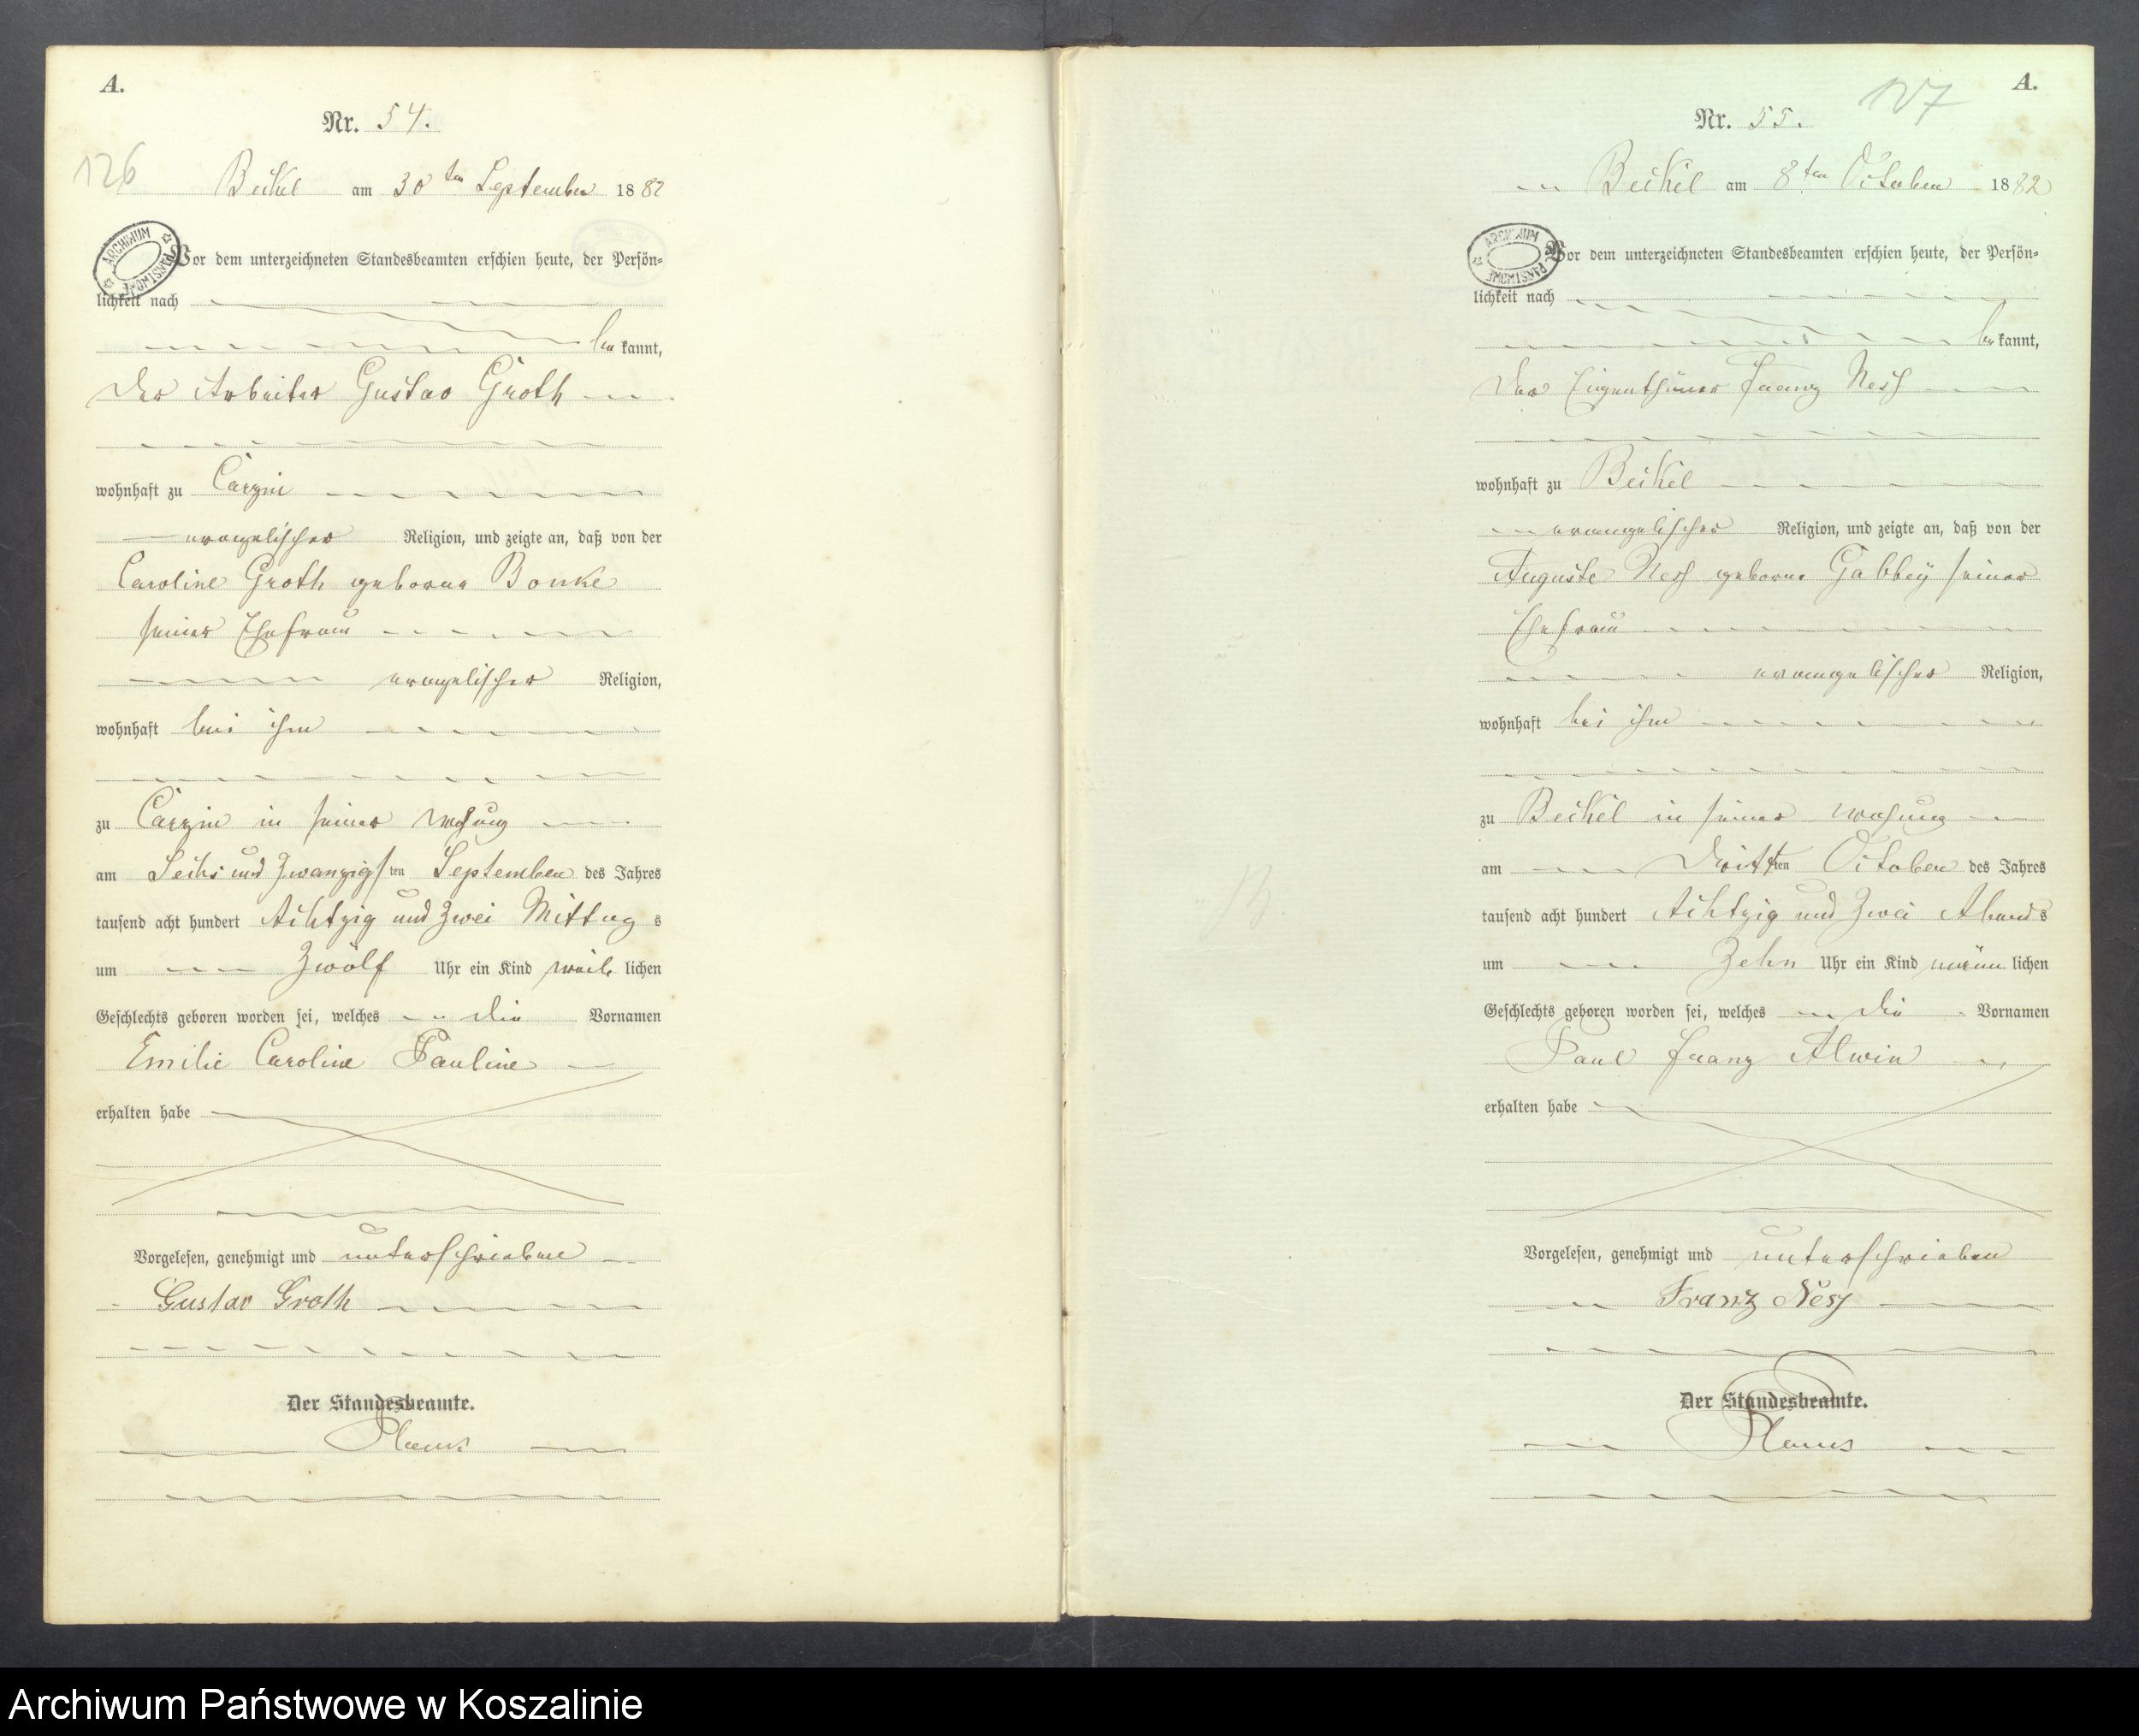 A.
Nr. 54.
126
Beikel am 30ten September 1882
ARCHIWUM PAŃSTWOWE
Vor dem unterzeichneten Standesbeamten erschien heute, der Persön-
lichkeit nach
bekannt,
der Arbeiter Gustav Groth
wohnhaft zu Carzin
evangelischer Religion, und zeigte an, daß von der
Caroline Groth geborne Bonke
seiner Ehefrau
evangelischer Religion,
wohnhaft bei ihm
zu Carzin in seiner Wohung
am Sechs und Zwanzigsten September des Jahres
tausend acht hundert Achtzig und Zwei Mittags
um Zwölf Uhr ein Kind weiblichen
Geschlechts geboren worden sei, welches die Vornamen
Emilie Caroline Pauline
erhalten habe
Vorgelesen, genehmigt und unterschrieben
Gustav Groth
Der Standesbeamte.
A.
127
Nr. 55.
Beikel am 8ten October 1882
ARCHIWUM PAŃSTWOWE
Vor dem unterzeichneten Standesbeamten erschien heute, der Persön-
lichkeit nach
bekannt,
der Eigenthümer Franz Nesz
wohnhaft zu Beikel
evangelischer Religion, und zeigte an, daß von der
Auguste Nesz geborne Gabbey seiner
Ehefrau
evangelischer Religion,
wohnhaft bei ihm
zu Beikel in seiner Wohung
am Dritten October des Jahres
tausend acht hundert Achtzig und Zwei Abends
um Zehn Uhr ein Kind männlichen
Geschlechts geboren worden sei, welches die Vornamen
Paul Franz Alwin
erhalten habe
Vorgelesen, genehmigt und unterschrieben
Franz Nesz
Der Standesbeamte.
Archiwum Państwowe w Koszalinie